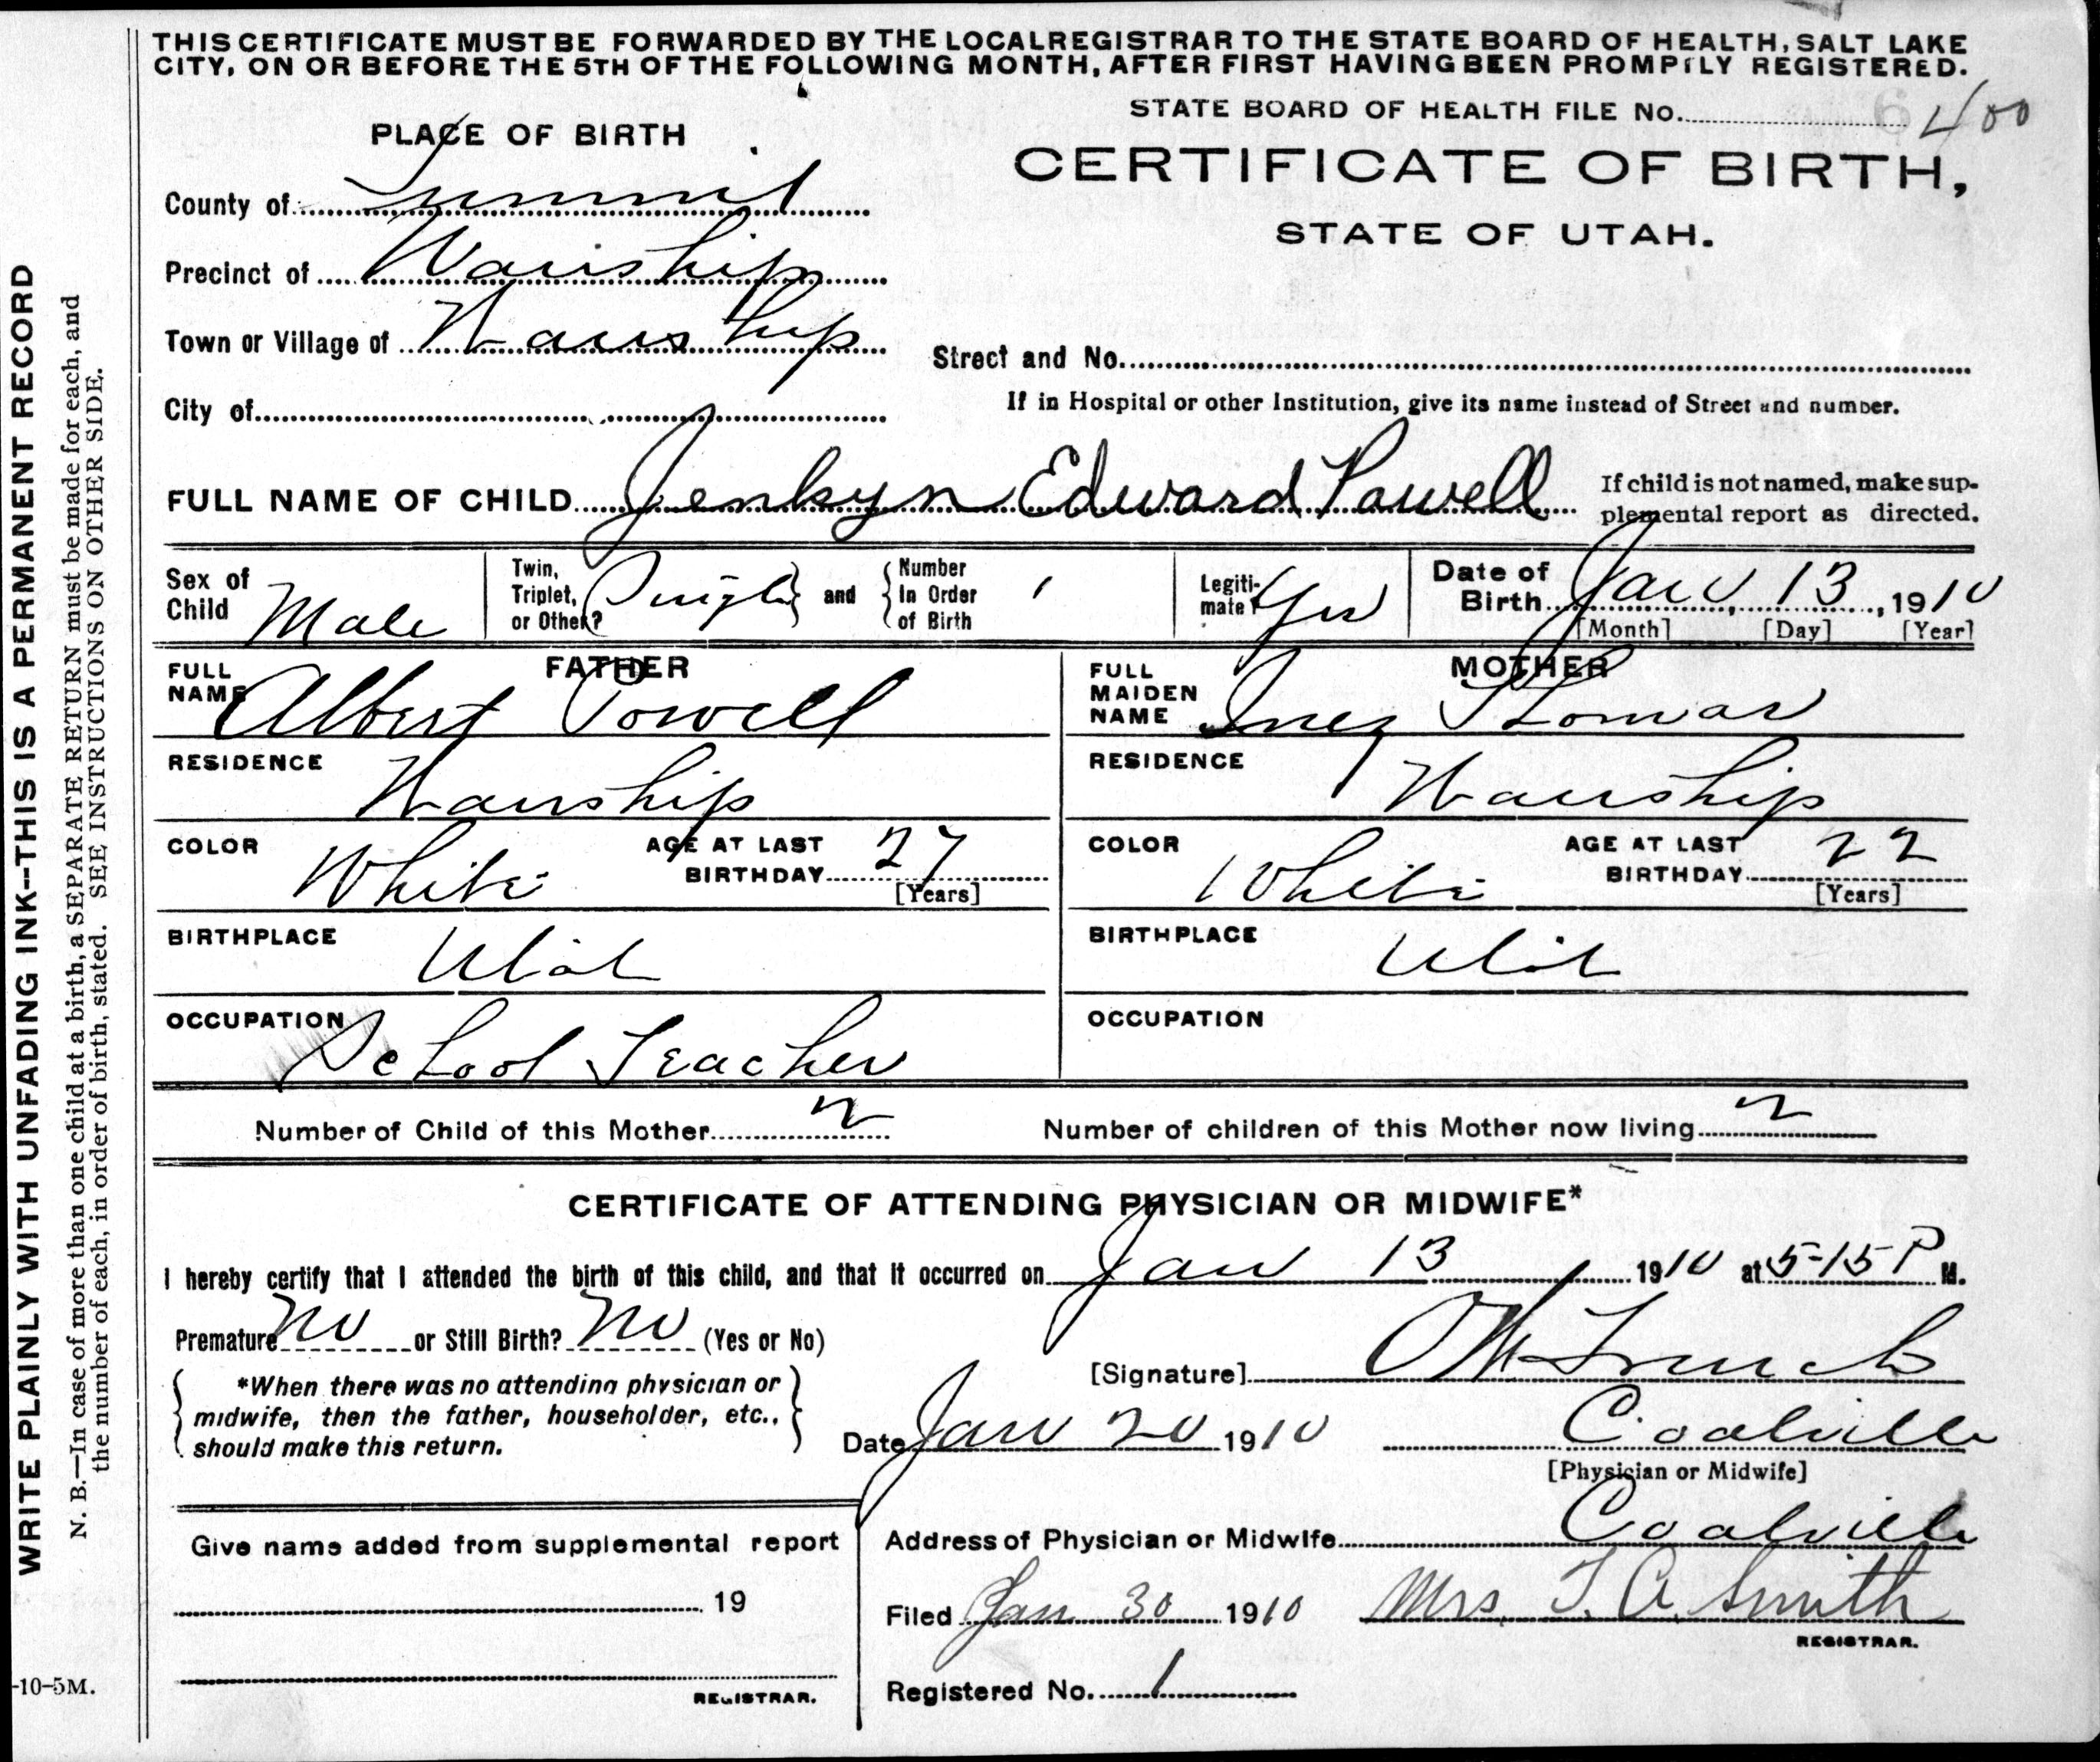 THIS CERTIFICATE MUST BE FORWARDED BY THE LOCAL REGISTRAR TO THE STATE BOARD OF HEALTH, SALT LAKE
CITY, ON OR BEFORE THE 5TH OF THE FOLLOWING MONTH, AFTER FIRST HAVING BEEN PROMPTLY REGISTERED.
STATE BOARD OF HEALTH FILE No. 400
PLACE OF BIRTH
CERTIFICATE OF BIRTH,
STATE OF UTAH.
County of Summit
Precinct of Wanship
Town or Village of Wanship
Street and No.
City of
If in Hospital or other Institution, give its name instead of Street and number.
FULL NAME OF CHILD Jenkyn Edward Powell
If child is not named, make sup-
plemental report as directed.
Sex of Child Male
Twin, Triplet, or Other? Single and Number In Order of Birth 1
Legiti-mate? Yes
Date of Birth Jan 13, 1910
[Month] [Day] [Year]
FATHER
FULL NAME Albert Powell
MOTHER
FULL MAIDEN NAME Inez Thomas
RESIDENCE Wanship
RESIDENCE Wanship
COLOR White AGE AT LAST BIRTHDAY 27 [Years]
COLOR White AGE AT LAST BIRTHDAY 22 [Years]
BIRTHPLACE Utah
BIRTHPLACE Utah
OCCUPATION School Teacher
OCCUPATION
Number of Child of this Mother 2 Number of children of this Mother now living 2
CERTIFICATE OF ATTENDING PHYSICIAN OR MIDWIFE*
I hereby certify that I attended the birth of this child, and that it occurred on Jan 13 1910 at 5-15 P M.
Premature No or Still Birth? No (Yes or No)
*When there was no attending physician or
midwife, then the father, householder, etc.,
should make this return.
[Signature]
Date Jan 20 1910 Coalville
[Physician or Midwife]
Give name added from supplemental report
19
REGISTRAR.
Address of Physician or Midwife Coalville
Filed Jan 30 1910 Mrs. T. A. Smith
REGISTRAR.
Registered No. 1
WRITE PLAINLY WITH UNFADING INK--THIS IS A PERMANENT RECORD
N. B.—In case of more than one child at a birth, a SEPARATE RETURN must be made for each, and
the number of each, in order of birth, stated. SEE INSTRUCTIONS ON OTHER SIDE.
-10-5M.